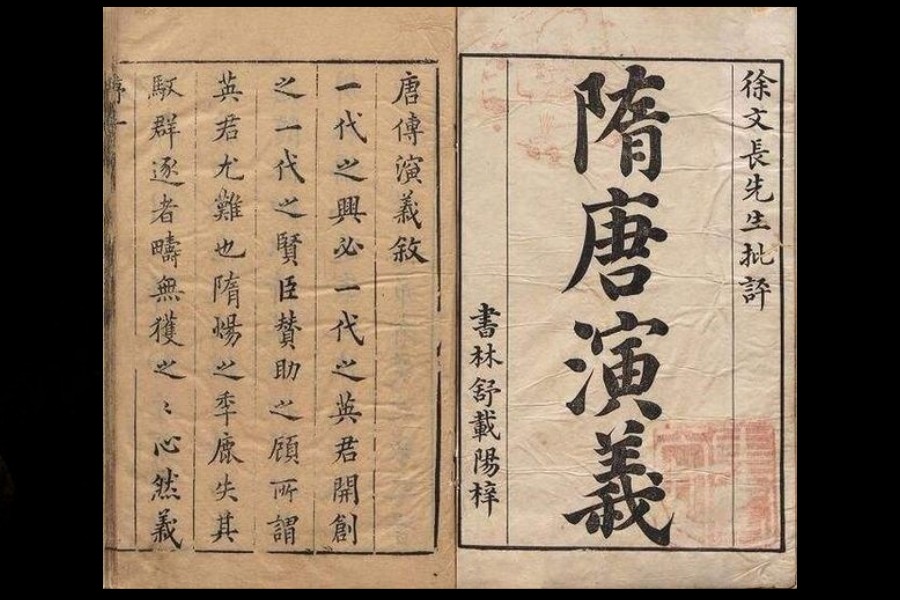 徐文長先生批評
隋唐演義
書林舒載陽梓
唐傳演義敘
一代之興必一代之英君開創
之一代之賢臣賛助之顧所謂
英君尤難也隋煬之季鹿失其
馭群逐者疇無獲之〻心然義